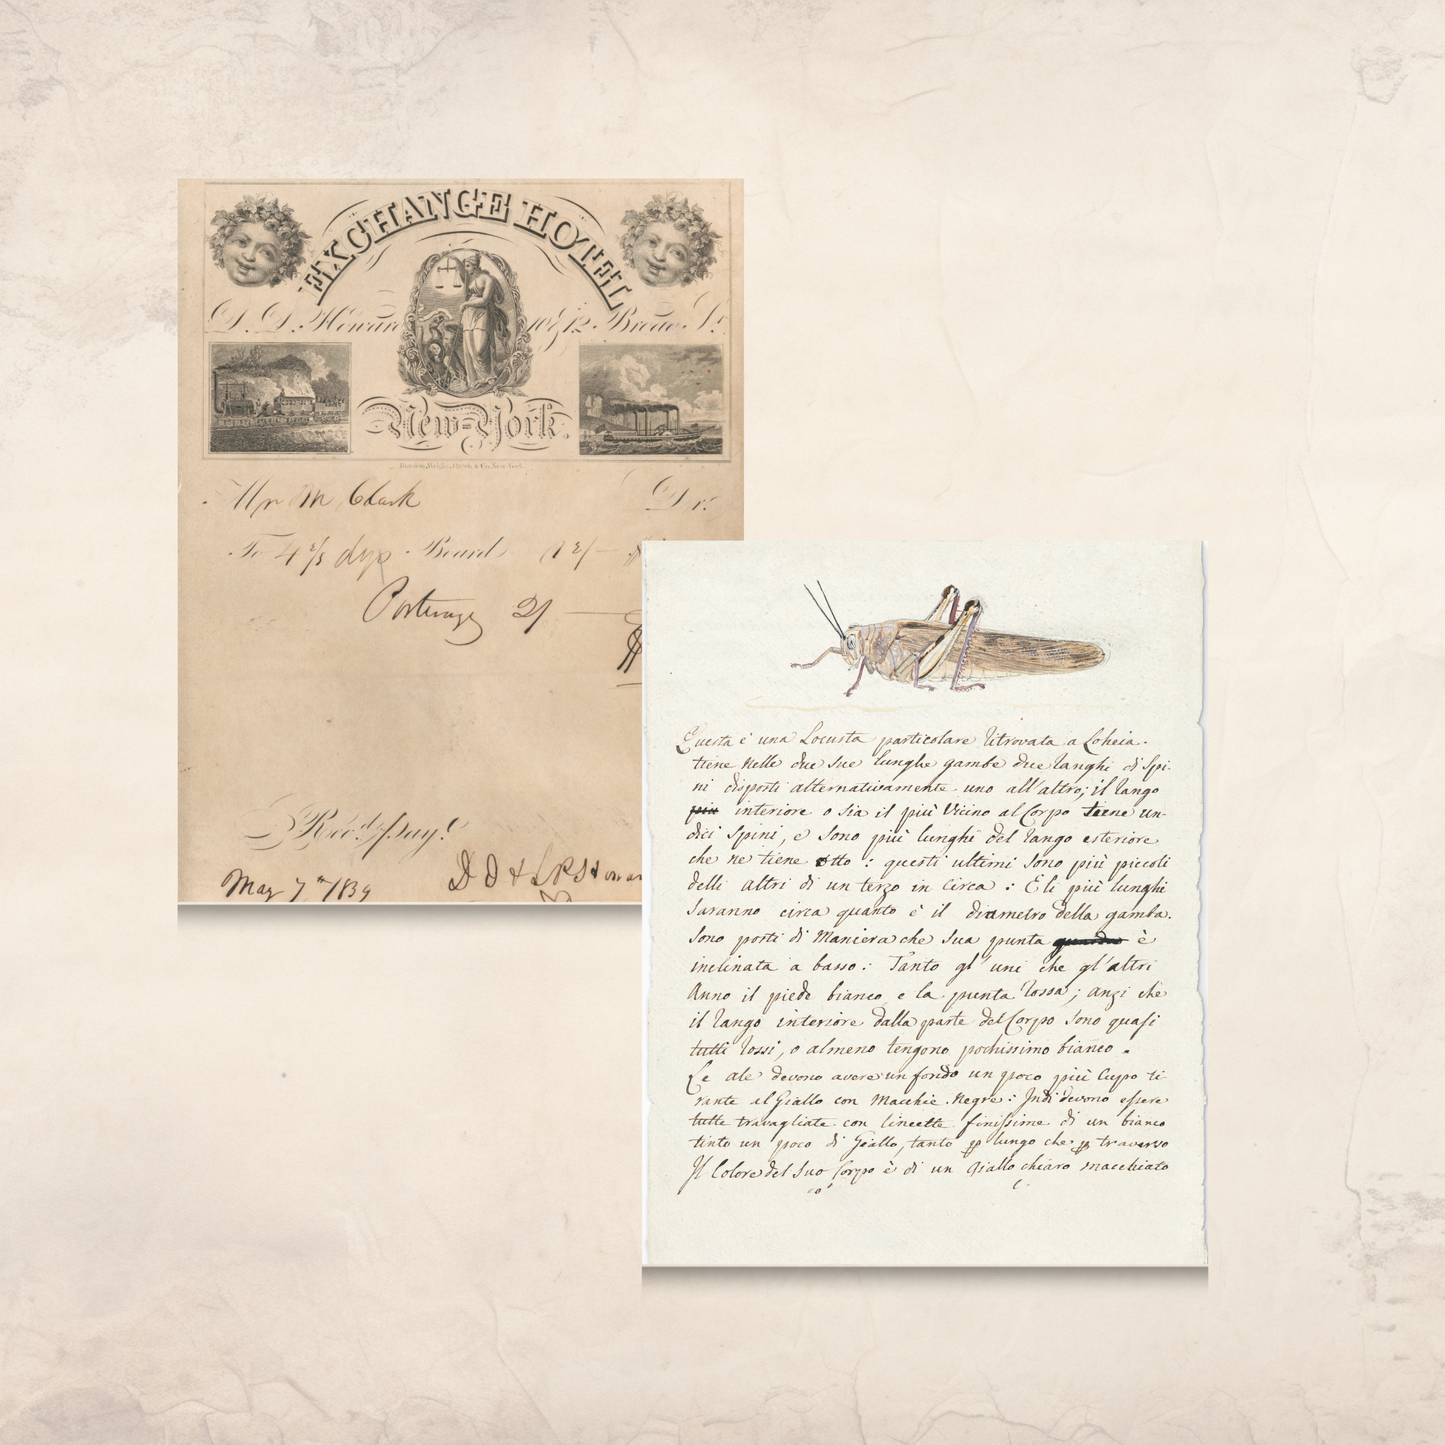 EXCHANGE HOTEL
D. D. Howard 10 & 12 Broad St.
New-York.
Mr M Clark Dr.
To 4 2/3 dys Board 12/–
Porterage 2/ –
$
Recd. Payt.
May 7th 1839
D D &
Questa è una Locusta particolare Ritrovata a Loheia.
tiene Nelle due sue lunghe gambe due Ranghi di Spi-
ni disposti alternativamente uno all'altro; il Rango
più interiore o sia il più Vicino al Corpo tiene un-
dici Spini, e Sono più lunghi del Rango esteriore
che ne tiene otto : questi ultimi Sono più piccoli
delli altri di un terzo in circa : E li più lunghi
Saranno circa quanto è il diametro della gamba.
Sono posti di Maniera che Sua punta è
inclinata a basso : Tanto gl'uni che gl'altri
Anno il piede bianco e la punta Rossa; anzi che
il Rango interiore dalla parte del Corpo Sono quasi
tutti Rossi, o almeno tengono pochissimo bianco.
Le ale devono avere un fondo un poco più Cupo ti-
rante al Giallo con Macchie Negre : Indi devono essere
tutte travagliate con lineette finissime di un bianco
tinto un poco di Giallo, tanto p lungo che p traverso
Il Colore del Suo Corpo è di un Giallo chiaro macchiato